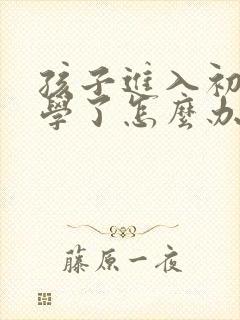 孩子進入初
學了怎麼办
藤原一夜